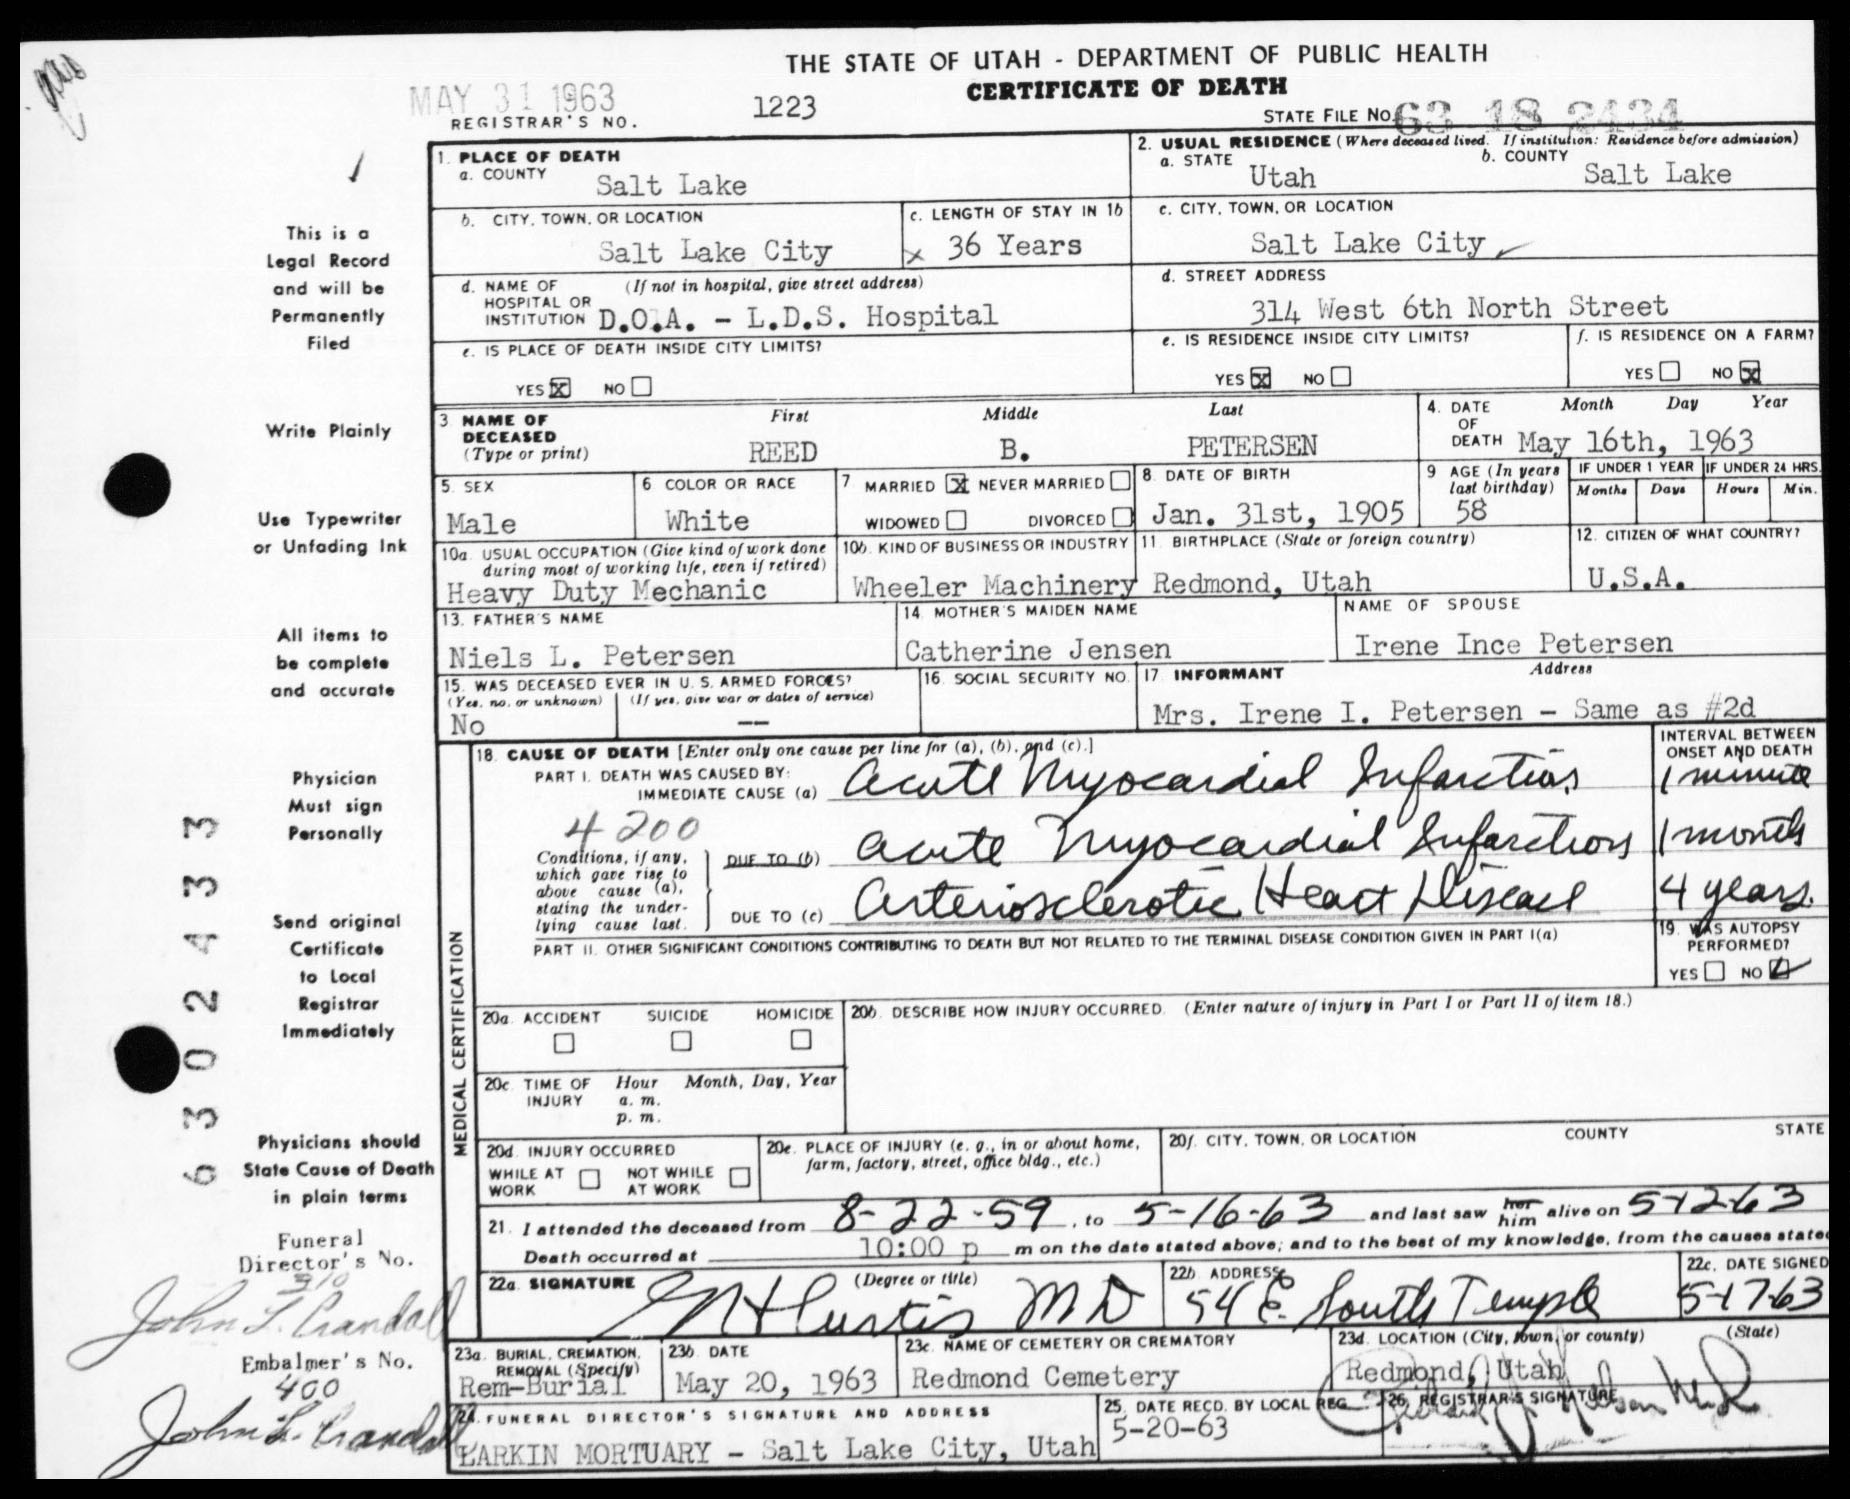 THE STATE OF UTAH - DEPARTMENT OF PUBLIC HEALTH
CERTIFICATE OF DEATH
MAY 31 1963
REGISTRAR'S NO.
1223
STATE FILE NO. 63 18 2434
This is a
Legal Record
and will be
Permanently
Filed
Write Plainly
Use Typewriter
or Unfading Ink
All items to
be complete
and accurate
Physician
Must sign
Personally
Send original
Certificate
to Local
Registrar
Immediately
Physicians should
State Cause of Death
in plain terms
Funeral
Director's No.
310
John L. Crandall
Embalmer's No.
400
John L. Crandall
6302433
1. PLACE OF DEATH
a. COUNTY
Salt Lake
2. USUAL RESIDENCE (Where deceased lived. If institution: Residence before admission)
a. STATE
Utah
b. COUNTY
Salt Lake
b. CITY, TOWN, OR LOCATION
Salt Lake City
c. LENGTH OF STAY IN 1b
x 36 Years
c. CITY, TOWN, OR LOCATION
Salt Lake City
d. NAME OF HOSPITAL OR INSTITUTION
(If not in hospital, give street address)
D.O.A. - L.D.S. Hospital
d. STREET ADDRESS
314 West 6th North Street
e. IS PLACE OF DEATH INSIDE CITY LIMITS?
YES X NO
e. IS RESIDENCE INSIDE CITY LIMITS?
YES X NO
f. IS RESIDENCE ON A FARM?
YES NO X
3. NAME OF DECEASED
(Type or print)
First Middle Last
REED B. PETERSEN
4. DATE OF DEATH
Month Day Year
May 16th, 1963
5. SEX
Male
6 COLOR OR RACE
White
7 MARRIED X NEVER MARRIED
WIDOWED DIVORCED
8. DATE OF BIRTH
Jan. 31st, 1905
9 AGE (In years last birthday)
58
IF UNDER 1 YEAR
Months Days
IF UNDER 24 HRS.
Hours Min.
10a. USUAL OCCUPATION (Give kind of work done during most of working life, even if retired)
Heavy Duty Mechanic
10b. KIND OF BUSINESS OR INDUSTRY
Wheeler Machinery
11. BIRTHPLACE (State or foreign country)
Redmond, Utah
12. CITIZEN OF WHAT COUNTRY?
U.S.A.
13. FATHER'S NAME
Niels L. Petersen
14. MOTHER'S MAIDEN NAME
Catherine Jensen
NAME OF SPOUSE
Irene Ince Petersen
15. WAS DECEASED EVER IN U. S. ARMED FORCES?
(Yes, no, or unknown)
(If yes, give war or dates of service)
No
--
16. SOCIAL SECURITY NO.
17 INFORMANT
Address
Mrs. Irene I. Petersen - Same as #2d
MEDICAL CERTIFICATION
18. CAUSE OF DEATH [Enter only one cause per line for (a), (b), and (c).]
INTERVAL BETWEEN ONSET AND DEATH
PART I. DEATH WAS CAUSED BY:
IMMEDIATE CAUSE (a) Acute Myocardial Infarction
1 minute
4200
Conditions, if any, which gave rise to above cause (a), stating the underlying cause last.
DUE TO (b) Acute Myocardial Infarction
1 month
DUE TO (c) Arteriosclerotic Heart Disease
4 years.
PART II. OTHER SIGNIFICANT CONDITIONS CONTRIBUTING TO DEATH BUT NOT RELATED TO THE TERMINAL DISEASE CONDITION GIVEN IN PART I(a)
19. WAS AUTOPSY PERFORMED?
YES NO
20a. ACCIDENT SUICIDE HOMICIDE
20b. DESCRIBE HOW INJURY OCCURRED. (Enter nature of injury in Part I or Part II of item 18.)
20c. TIME OF INJURY
Hour Month, Day, Year
a. m.
p. m.
20d. INJURY OCCURRED
WHILE AT WORK
NOT WHILE AT WORK
20e. PLACE OF INJURY (e. g., in or about home, farm, factory, street, office bldg., etc.)
20f. CITY, TOWN, OR LOCATION COUNTY STATE
21. I attended the deceased from 8-22-59, to 5-16-63 and last saw her him alive on 5-12-63
Death occurred at 10:00 p m on the date stated above; and to the best of my knowledge, from the causes stated
22a. SIGNATURE
(Degree or title)
Curtis MD
22b. ADDRESS
54 E. South Temple
22c. DATE SIGNED
5-17-63
23a. BURIAL, CREMATION, REMOVAL (Specify)
Rem-Burial
23b. DATE
May 20, 1963
23c. NAME OF CEMETERY OR CREMATORY
Redmond Cemetery
23d. LOCATION (City, town, or county) (State)
Redmond, Utah
24. FUNERAL DIRECTOR'S SIGNATURE AND ADDRESS
LARKIN MORTUARY - Salt Lake City, Utah
25. DATE RECD. BY LOCAL REG.
5-20-63
26. REGISTRAR'S SIGNATURE